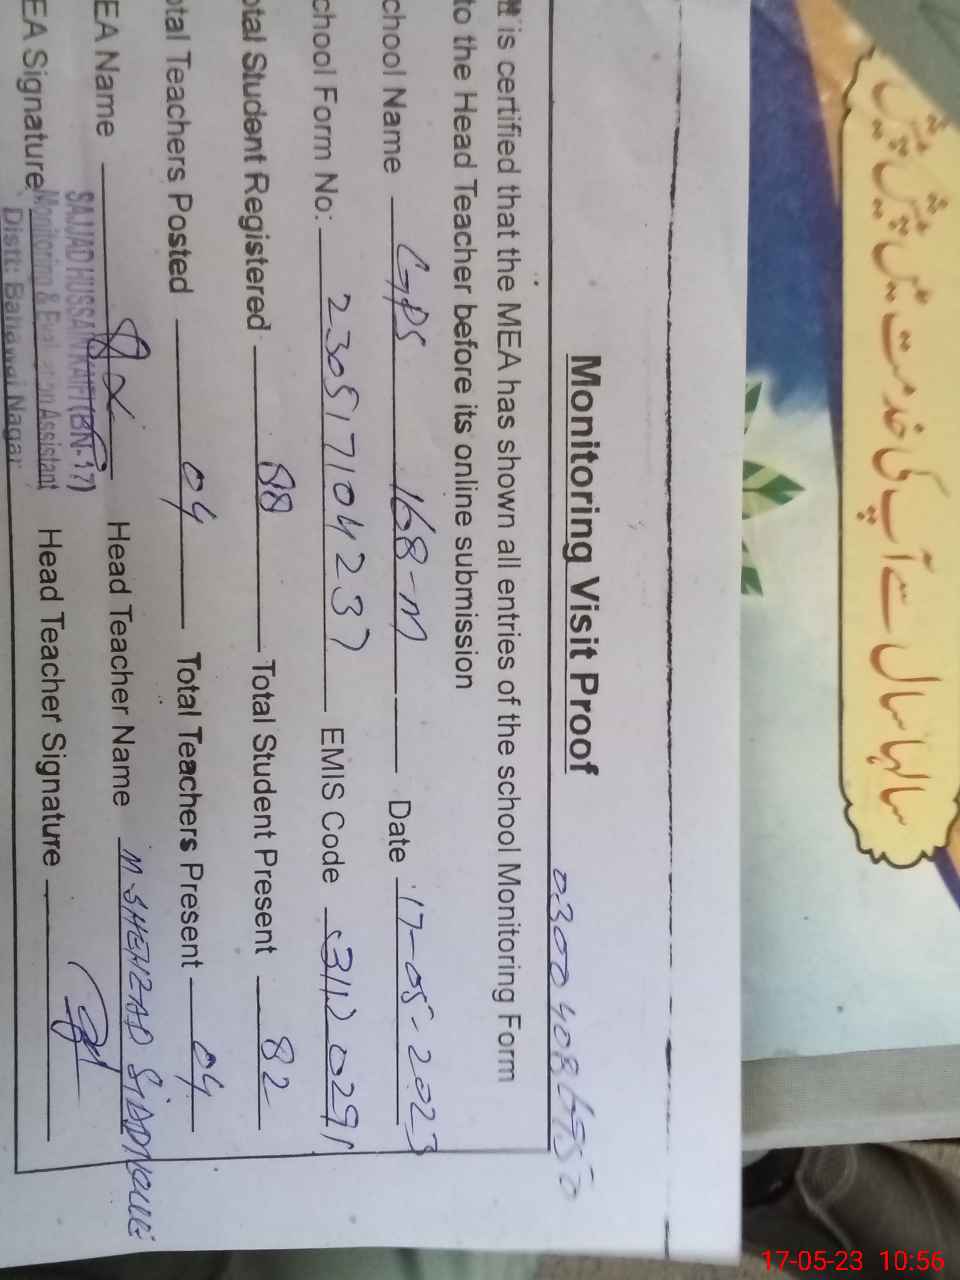 سالہا سال سے آپ کی خدمت میں پیش پیش
Monitoring Visit Proof
0300 4086950
It is certified that the MEA has shown all entries of the school Monitoring Form
to the Head Teacher before its online submission
chool Name GPS 168-M Date 17-05-2023
chool Form No: 230517104237 EMIS Code 31120291
otal Student Registered 88 Total Student Present 82
otal Teachers Posted 04 Total Teachers Present 04
EA Name Head Teacher Name M. SHEHZAD
SAJJAD HUSSAIN KAIFI (BN-17)
EA Signature Monitoring & Evaluation Assistant Head Teacher Signature
Distt: Bahawal Nagar
17-05-23 10:56